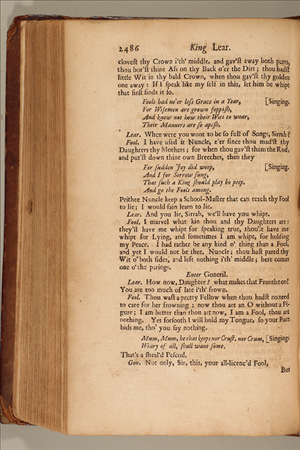 2486 King Lear.
clovest thy Crown i'th' middle, and gav'st away both parts,
thou bor'st thine Ass on thy Back o'er the Dirt; thou hadst
little Wit in thy bald Crown, when thou gav'st thy golden
one away: If I speak like my self in this, let him be whipt
that first finds it so.
Fools had ne'er less Grace in a Year, [Singing.
For Wisemen are grown foppish,
And know not how their Wits to wear,
Their Manners are so apish.
Lear. When were you wont to be so full of Songs, Sirrah?
Fool. I have used it Nuncle, e'er since thou mad'st thy
Daughters thy Mothers; for when thou gav'st them the Rod,
and put'st down thine own Breeches, then they
For sudden Joy did weep, [Singing.
And I for Sorrow sung,
That such a King should play bo peep,
And go the Fools among.
Prithee Nuncle keep a School-Master that can teach thy Fool
to lie; I would fain learn to lie.
Lear. And you lie, Sirrah, we'll have you whipt.
Fool. I marvel what kin thou and thy Daughters are:
they'll have me whipt for speaking true, thou'lt have me
whipt for Lying, and sometimes I am whipt, for holding
my Peace. I had rather be any kind o' thing than a Fool,
and yet I would not be thee, Nuncle; thou hast pared thy
Wit o' both sides, and left nothing i'th' middle; here comes
one o' the parings.
Enter Gonerill.
Lear. How now, Daughter? what makes that Frontlet on?
You are too much of late i'th' frown.
Fool. Thou wast a pretty Fellow when thou hadst no need
to care for her frowning; now thou art an O without a Fi-
gure; I am better than thou art now, I am a Fool, thou art
nothing. Yes forsooth I will hold my Tongue, so your Face
bids me, tho' you say nothing.
Mum, Mum, he that keeps nor Crust, nor Crum, [Singing.
Weary of all, shall want some.
That's a sheal'd Pescod.
Gon. Not only, Sir, this, your all-licenc'd Fool,
But